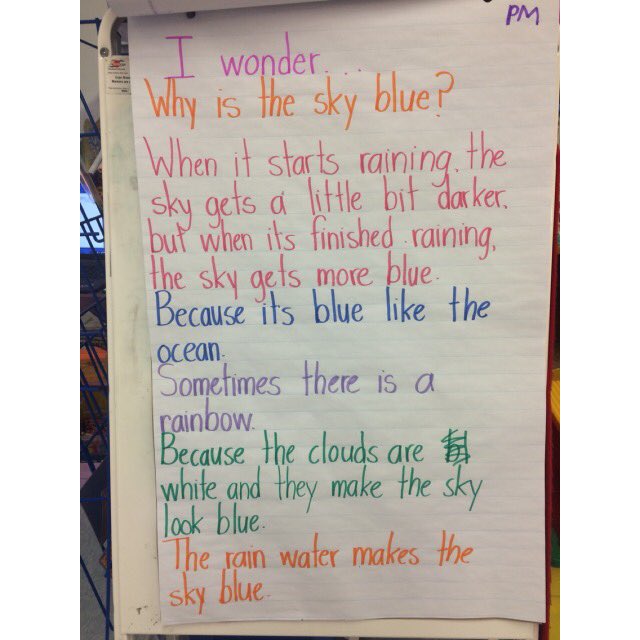 PM
I wonder...
Why is the sky blue?
When it starts raining, the
sky gets a little bit darker,
but when its finished raining,
the sky gets more blue.
Because its blue like the
ocean.
Sometimes there is a
rainbow.
Because the clouds are
white and they make the sky
look blue.
The rain water makes the
sky blue.